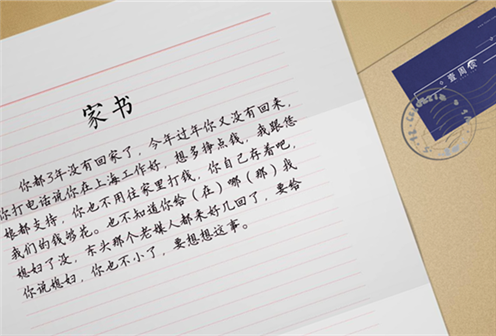 家书
你都3年没有回家了，今年过年你又没有回来，
你打电话说你在上海工作好，想多挣点钱，我跟您
娃都支持，你也不用往家里打钱，你自己存着吧，
我们的钱够花。也不知道你给（在）哪（那）我
媳妇了没，东头那个老媒人都来好几回了，要给
你说媳妇，你也不小了，要想想这事。
壹周侃